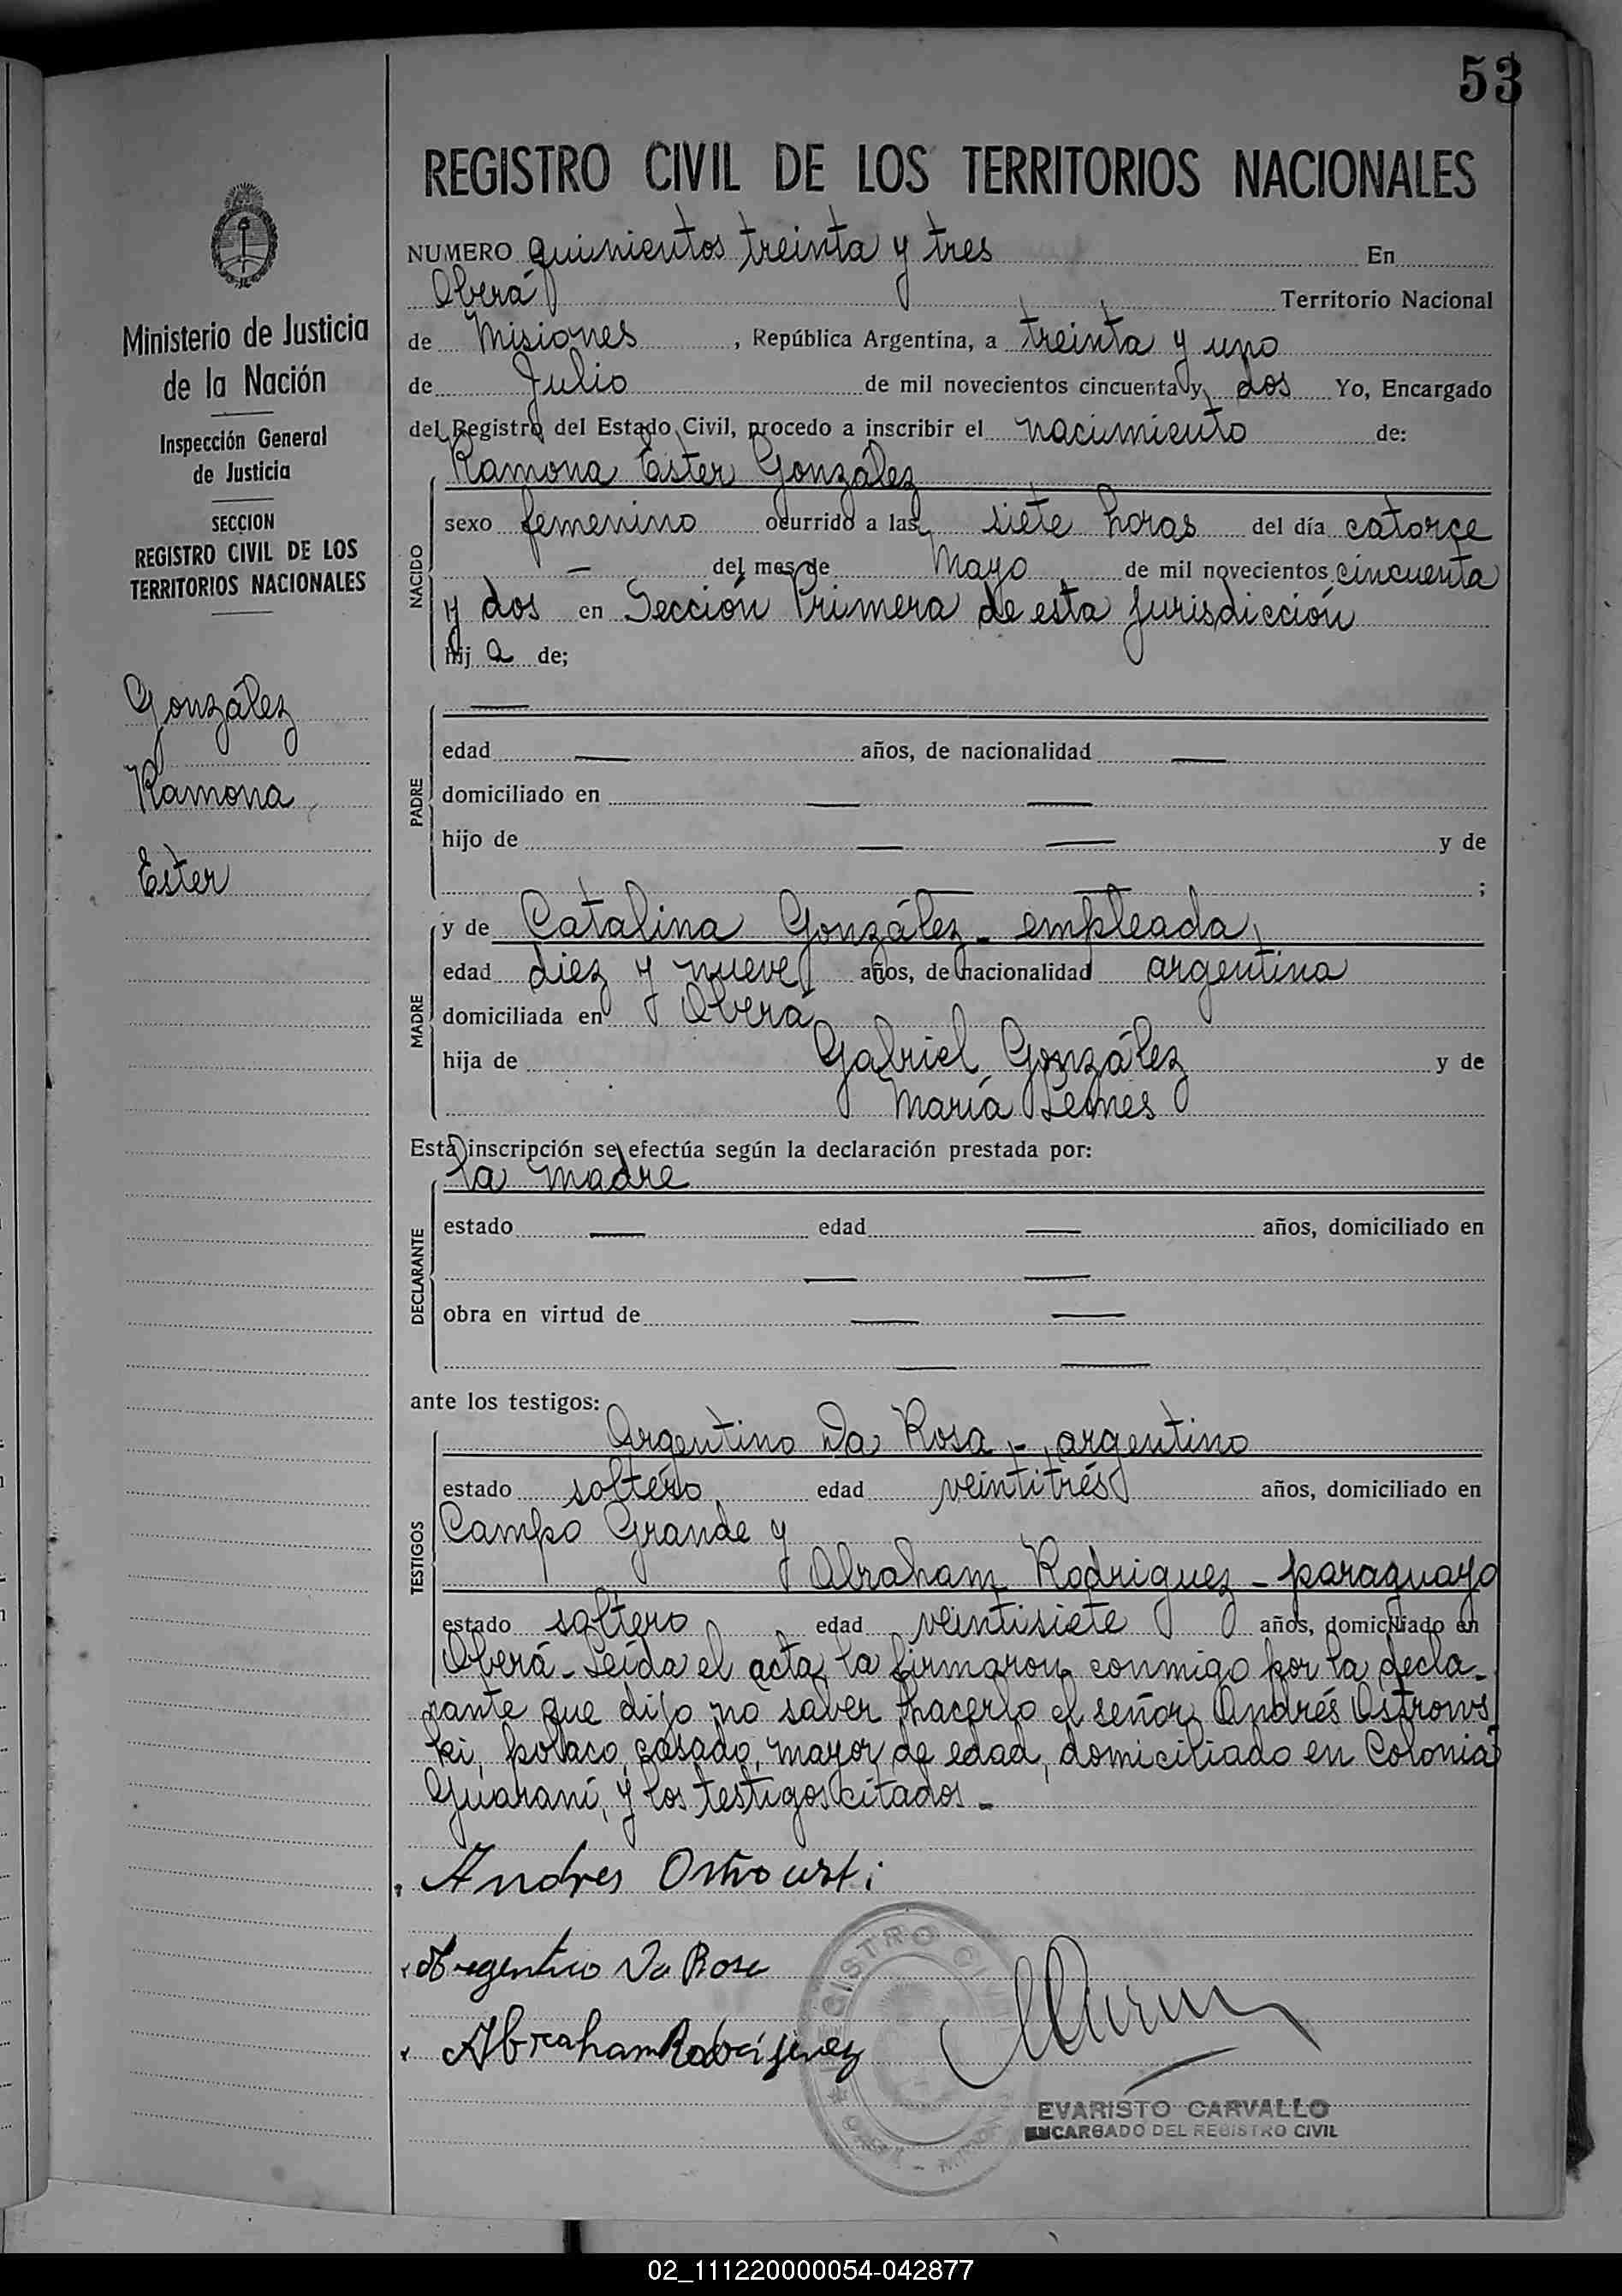 53
REGISTRO CIVIL DE LOS TERRITORIOS NACIONALES
Ministerio de Justicia
de la Nación
Inspección General
de Justicia
SECCION
REGISTRO CIVIL DE LOS
TERRITORIOS NACIONALES
González
Ramona
Ester
NUMERO quinientos treinta y tres En
Oberá Territorio Nacional
de Misiones, República Argentina, a treinta y uno
de Julio de mil novecientos cincuenta y dos Yo, Encargado
del Registro del Estado Civil, procedo a inscribir el nacimiento de:
NACIDO
Ramona Ester González
sexo femenino ocurrido a las siete horas del día catorce
— del mes de Mayo de mil novecientos cincuenta
y dos en Sección Primera de esta jurisdicción
hij a de;
PADRE
—
edad — años, de nacionalidad —
domiciliado en — —
hijo de — — y de
— — ;
MADRE
y de Catalina González - empleada,
edad diez y nueve años, de nacionalidad argentina
domiciliada en Oberá
hija de Gabriel González y de
María Lemes
Esta inscripción se efectúa según la declaración prestada por:
DECLARANTE
la madre
estado — edad — años, domiciliado en
— —
obra en virtud de — —
— —
ante los testigos:
TESTIGOS
Argentino Da Rosa - argentino
estado soltero edad veintitrés años, domiciliado en
Campo Grande y
Abraham Rodriguez - paraguayo
estado soltero edad veintisiete años, domiciliado en
Oberá - Leída el acta, la firmaron conmigo por la decla-
rante que dijo no saber hacerlo el señor Andrés Ostrows
ki, polaco, casado, mayor de edad, domiciliado en Colonia
Guaraní, y los testigos citados -
Andres Ostrowski
Argentino Da Rosa
Abraham Rodriguez
REGISTRO CIVIL
OBERA - MISIONES
EVARISTO CARVALLO
ENCARGADO DEL REGISTRO CIVIL
02_111220000054-042877